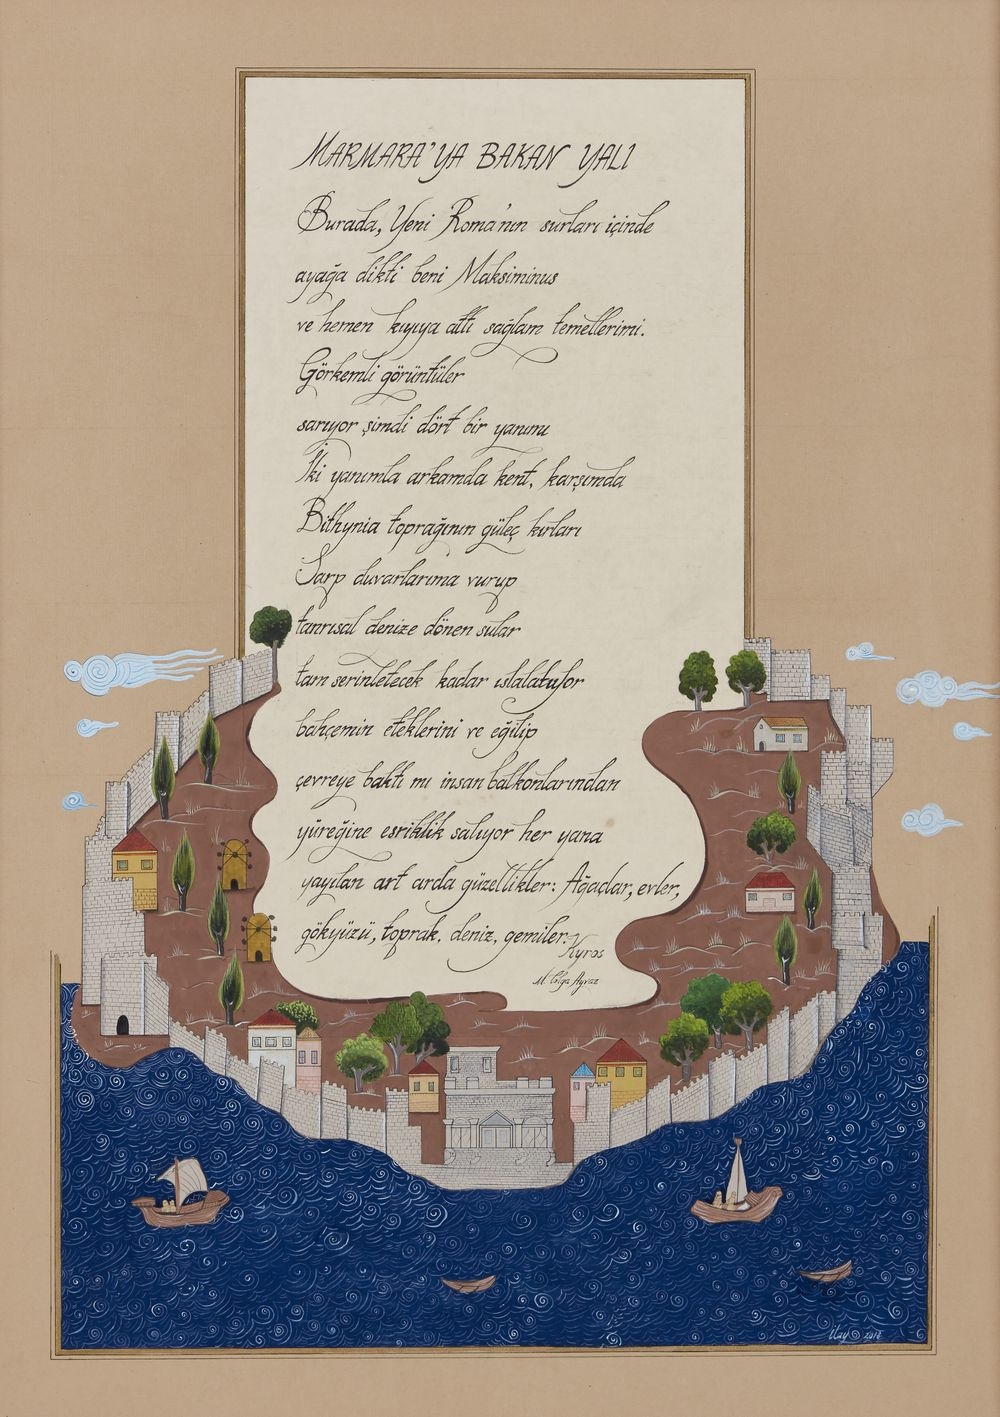 MARMARA'YA BAKAN YALI
Burada, Yeni Roma'nın surları içinde
ayağa dikti beni Maksiminus
ve hemen kıyıya attı sağlam temellerimi.
Görkemli görüntüler
sarıyor şimdi dört bir yanımı
İki yanımla arkamda kent, karşımda
Bithynia toprağının güleç kırları
Sarp duvarlarıma vurup
tanrısal denize dönen sular
tam serinletecek kadar ıslalatıyor
bahçemin eteklerini ve eğilip
çevreye baktı mı insan balkonlarından
yüreğine esriklik salıyor her yana
yayılan art arda güzellikler: Ağaçlar, evler,
gökyüzü, toprak, deniz, gemiler.
Kyros
M. Tolga Ayvaz